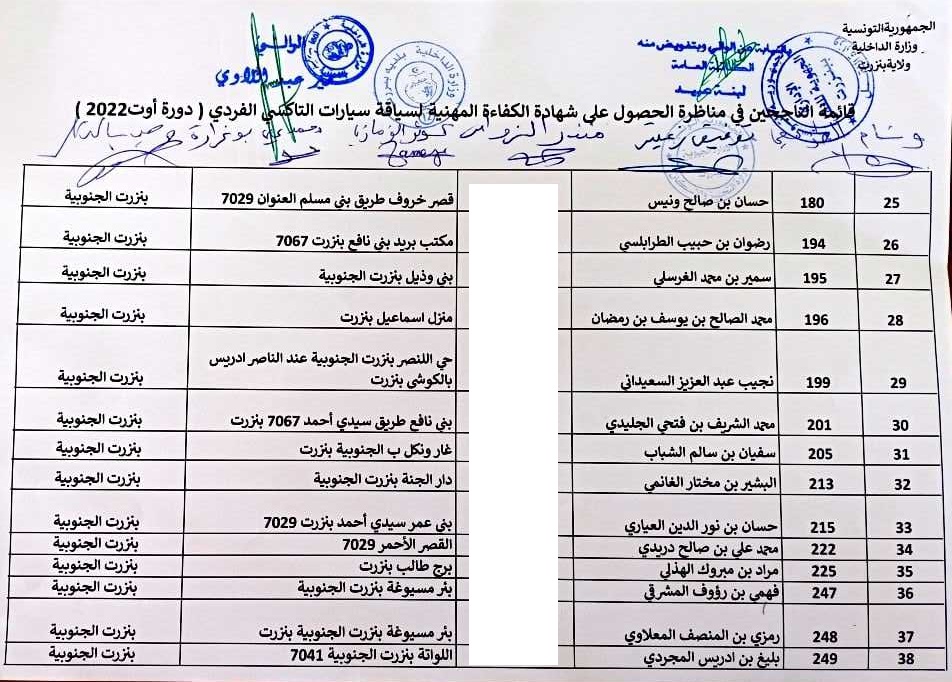 الجمهورية التونسية
وزارة الداخلية
ولاية بنزرت
الوالي
وبتفويض منه
الكاتبة العامة
قائمة الناجحين في مناظرة الحصول على شهادة الكفاءة المهنية لسياقة سيارات التاكسي الفردي ( دورة أوت 2022 )
25 180 حسان بن صالح ونيس قصر خروف طريق بني مسلم العنوان 7029 بنزرت الجنوبية
26 194 رضوان بن حبيب الطرابلسي مكتب بريد بني نافع بنزرت 7067 بنزرت الجنوبية
27 195 سمير بن محمد الغرسلي بني وذيل بنزرت الجنوبية بنزرت الجنوبية
28 196 محمد الصالح بن يوسف بن رمضان منزل اسماعيل بنزرت بنزرت الجنوبية
29 199 نجيب عبد العزيز السعيداني حي اللنصر بنزرت الجنوبية عند الناصر ادريس
بالكوشي بنزرت بنزرت الجنوبية
30 201 محمد الشريف بن فتحي الجليدي بني نافع طريق سيدي أحمد 7067 بنزرت بنزرت الجنوبية
31 205 سفيان بن سالم الشباب غار ونكل ب الجنوبية بنزرت بنزرت الجنوبية
32 213 البشير بن مختار الغانمي دار الجنة بنزرت الجنوبية بنزرت الجنوبية
33 215 حسان بن نور الدين العياري بني عمر سيدي أحمد بنزرت 7029 بنزرت الجنوبية
34 222 محمد علي بن صالح دريدي القصر الأحمر 7029 بنزرت الجنوبية
35 225 مراد بن مبروك الهذلي برج طالب بنزرت بنزرت الجنوبية
36 247 فهمي بن رؤوف المشرقي بئر مسيوغة بنزرت الجنوبية بنزرت الجنوبية
37 248 رمزي بن المنصف المعلاوي بئر مسيوغة بنزرت الجنوبية بنزرت بنزرت الجنوبية
38 249 بليغ بن ادريس المجردي اللواتة بنزرت الجنوبية 7041 بنزرت الجنوبية